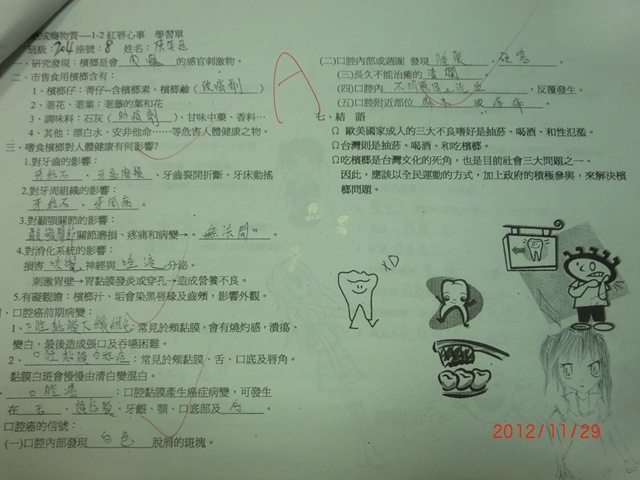 成癮物質----1-2 紅唇心事 學習單
班級：204 座號：8 姓名：
一、研究發現：檳榔是會 的感官刺激物。
二、市售食用檳榔含有：
1、檳榔仔：菁仔~含檳榔素、檳榔鹼（致癌劑）
2、荖花、荖葉：荖藤的葉和花
3、調味料：石灰（助癌劑）、甘味中藥、香料…
4、其他：漂白水、安非他命……等危害人體健康之物。
三、嗜食檳榔對人體健康有何影響?
1.對牙齒的影響：
牙結石、 、牙齒裂開折斷、牙床動搖
2.對牙周組織的影響：
牙結石、牙周病。
3.對顳顎關節的影響：
顳顎關節關節磨損、疼痛和病變→。無法開口。
4.對消化系統的影響：
損害味覺神經與唾液分泌。
刺激胃壁→胃黏膜發炎或穿孔→造成營養不良。
5.有礙觀瞻：檳榔汁、垢會染黑唇緣及齒頰，影響外觀。
口腔癌前期病變：
1、口腔黏膜下纖維化：常見於頰黏膜，會有燒灼感，潰瘍、
變白，最後造成張口及吞嚥困難。
2、口腔黏膜白斑症：常見於頰黏膜、舌、口底及唇角。
黏膜白斑會慢慢由清白變混白。
口腔癌：口腔黏膜產生癌症病變，可發生
在舌、頰黏膜、牙齦、顎、口底部及
口腔癌的信號：
(一)口腔內部發現 白色 脫屑的斑塊。
(二)口腔內部或週圍 發現 腫脹、硬塊
(三)長久不能治癒的潰爛
(四)口腔內 不明原因 出血，反覆發生。
(五)口腔附近部位 麻木 或 疼痛
七、結 語
Ω 歐美國家成人的三大不良嗜好是抽菸、喝酒、和性氾濫。
Ω台灣則是抽菸、喝酒、和吃檳榔。
Ω吃檳榔是台灣文化的死角，也是目前社會三大問題之一。
因此，應該以全民運動的方式，加上政府的積極參與，來解決檳
榔問題。
A
XD
2012/11/29